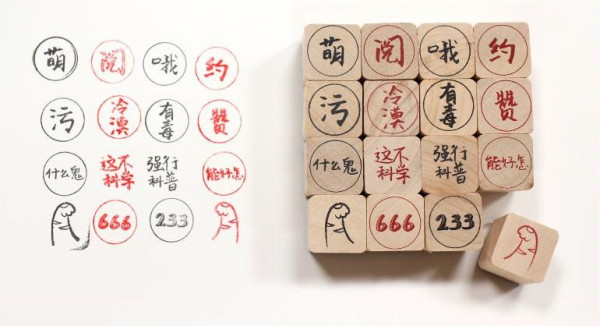 萌
阅
哦
约
污
冷
漠
有
毒
赞
什么鬼
这不
科学
强行
科普
能好怎
666
233
萌
阅
哦
约
污
冷
漠
有
毒
赞
什么鬼
这不
科学
强行
科普
能好怎
666
233